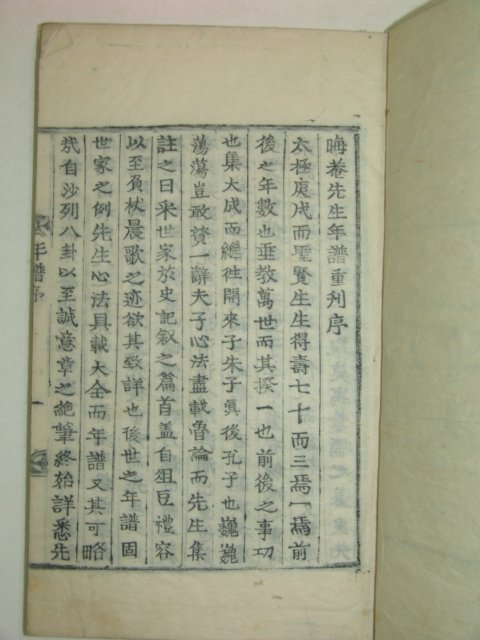 晦菴先生年譜重刋序
太極庚戌而聖賢生生得壽七十而三焉一焉前
後之年數也垂教萬世而其揆一也前後之事功
也集大成而繼徃開來子朱子眞後孔子也巍巍
蕩蕩豈敢贅一辭夫子心法盡載魯論而先生集
註之日采世家於史記叙之篇首盖自俎豆禮容
以至負杖晨歌之迹欲其致詳也後世之年譜固
世家之例先生心法具載大全而年譜又其可略
㢤自沙列八卦以至誠意章之絶筆終始詳悉先
年譜序
一